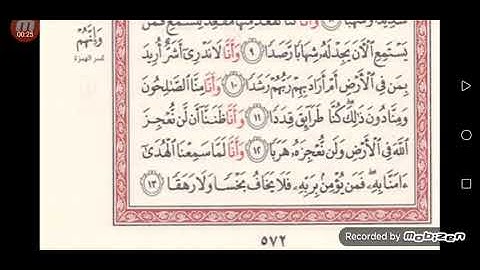 00:25
وَإِنَّهُمْ
كسر الهمزة
يَسْتَمِعِ الْأَنَ يَجِدْ لَهُ شِهَابًا رَّصَدًا ٩ وَأَنَّا لَا نَدْرِىٓ أَشَرٌّ أُرِيدَ
بِمَن فِى الْأَرْضِ أَمْ أَرَادَ بِهِمْ رَبُّهُمْ رَشَدًا ١٠ وَأَنَّا مِنَّا الصَّٰلِحُونَ
وَمِنَّا دُونَ ذَٰلِكَ كُنَّا طَرَآئِقَ قِدَدًا ١١ وَأَنَّا ظَنَنَّآ أَن لَّن نُّعْجِزَ
اللَّهَ فِى الْأَرْضِ وَلَن نُّعْجِزَهُ هَرَبًا ١٢ وَأَنَّا لَمَّا سَمِعْنَا الْهُدَىٰٓ
ءَامَنَّا بِهِ فَمَن يُؤْمِنْ بِرَبِّهِ فَلَا يَخَافُ بَخْسًا وَلَا رَهَقًا ١٣
٥٧٢
Recorded by Mobizen